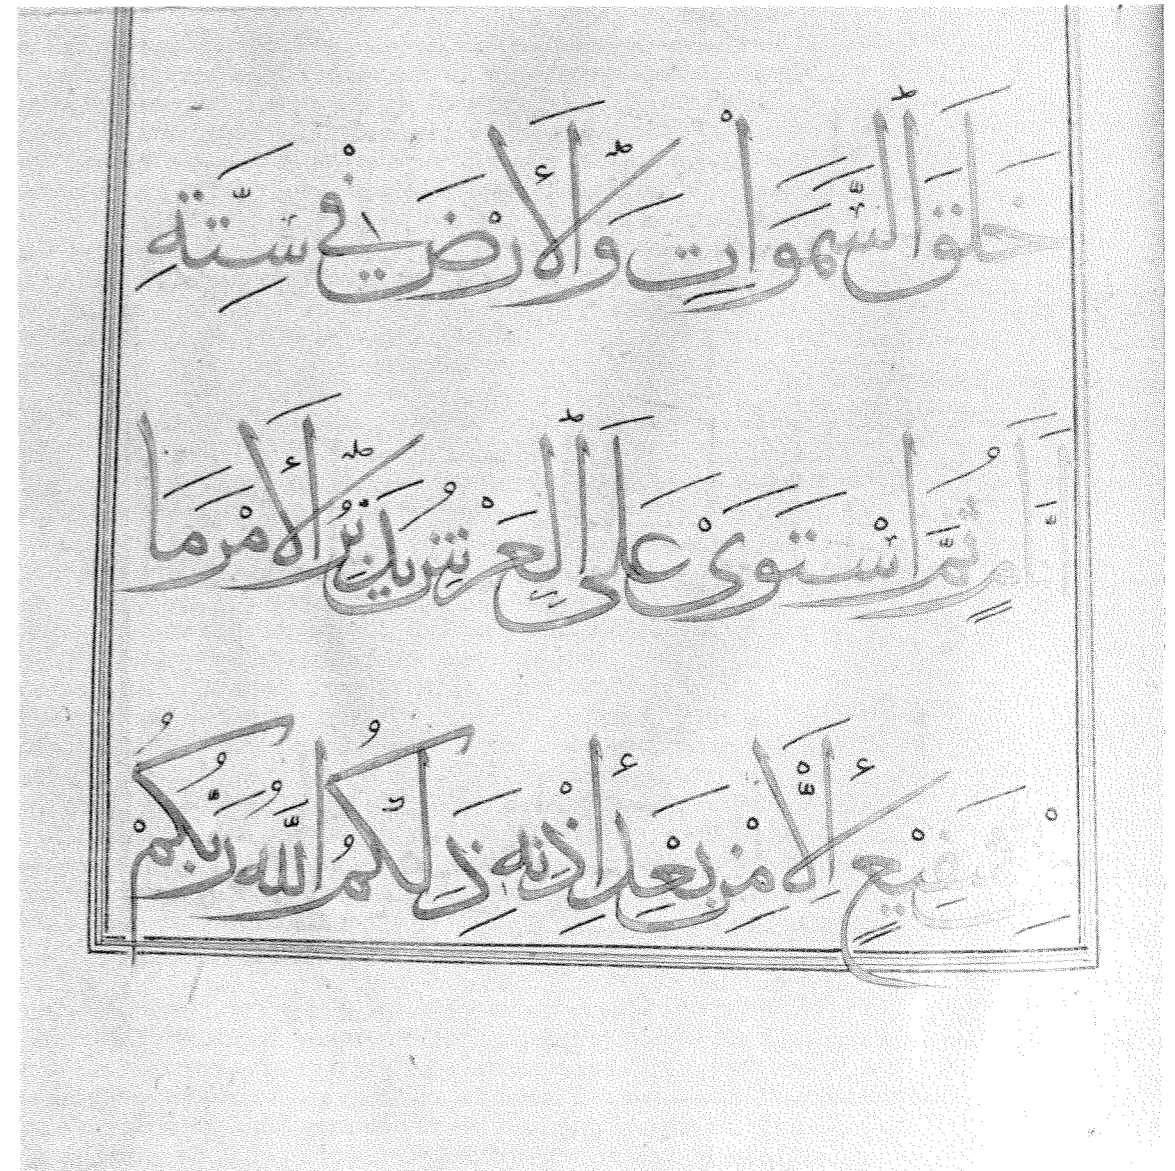 خَلَقَ السَّمَوَاتِ وَالْأَرْضَ فِي سِتَّةِ
أَيَّامٍ ثُمَّ اسْتَوَىٰ عَلَى الْعَرْشِ يُدَبِّرُ الْأَمْرَ مَا
مِنْ شَفِيعٍ إِلَّا مِنْ بَعْدِ إِذْنِهِ ذَلِكُمُ اللَّهُ رَبُّكُمْ